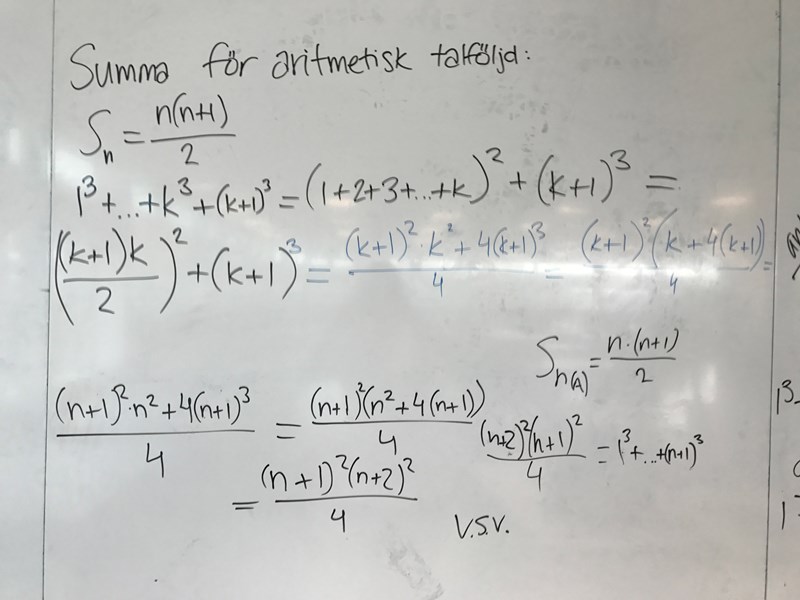 Summa för aritmetisk talföljd:
Sₙ = n(n+1)/2
1³+...+k³+(k+1)³ = (1+2+3+...+k)² + (k+1)³ =
((k+1)k/2)² + (k+1)³ = ((k+1)²·k²+4(k+1)³)/4 = (k+1)²(k+4(k+1))/4 =
Sₙ₍A₎ = n·(n+1)/2
((n+1)²·n²+4(n+1)³)/4 = (n+1)²(n²+4(n+1))/4
(n+2)²(n+1)²/4 = 1³+...+(n+1)³
= (n+1)²(n+2)²/4
V.S.V.
1³